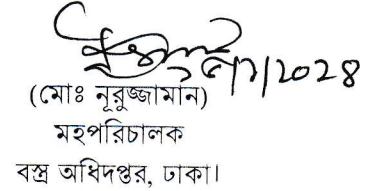 (মোঃ নূরুজ্জামান)
মহপরিচালক
বস্ত্র অধিদপ্তর, ঢাকা।